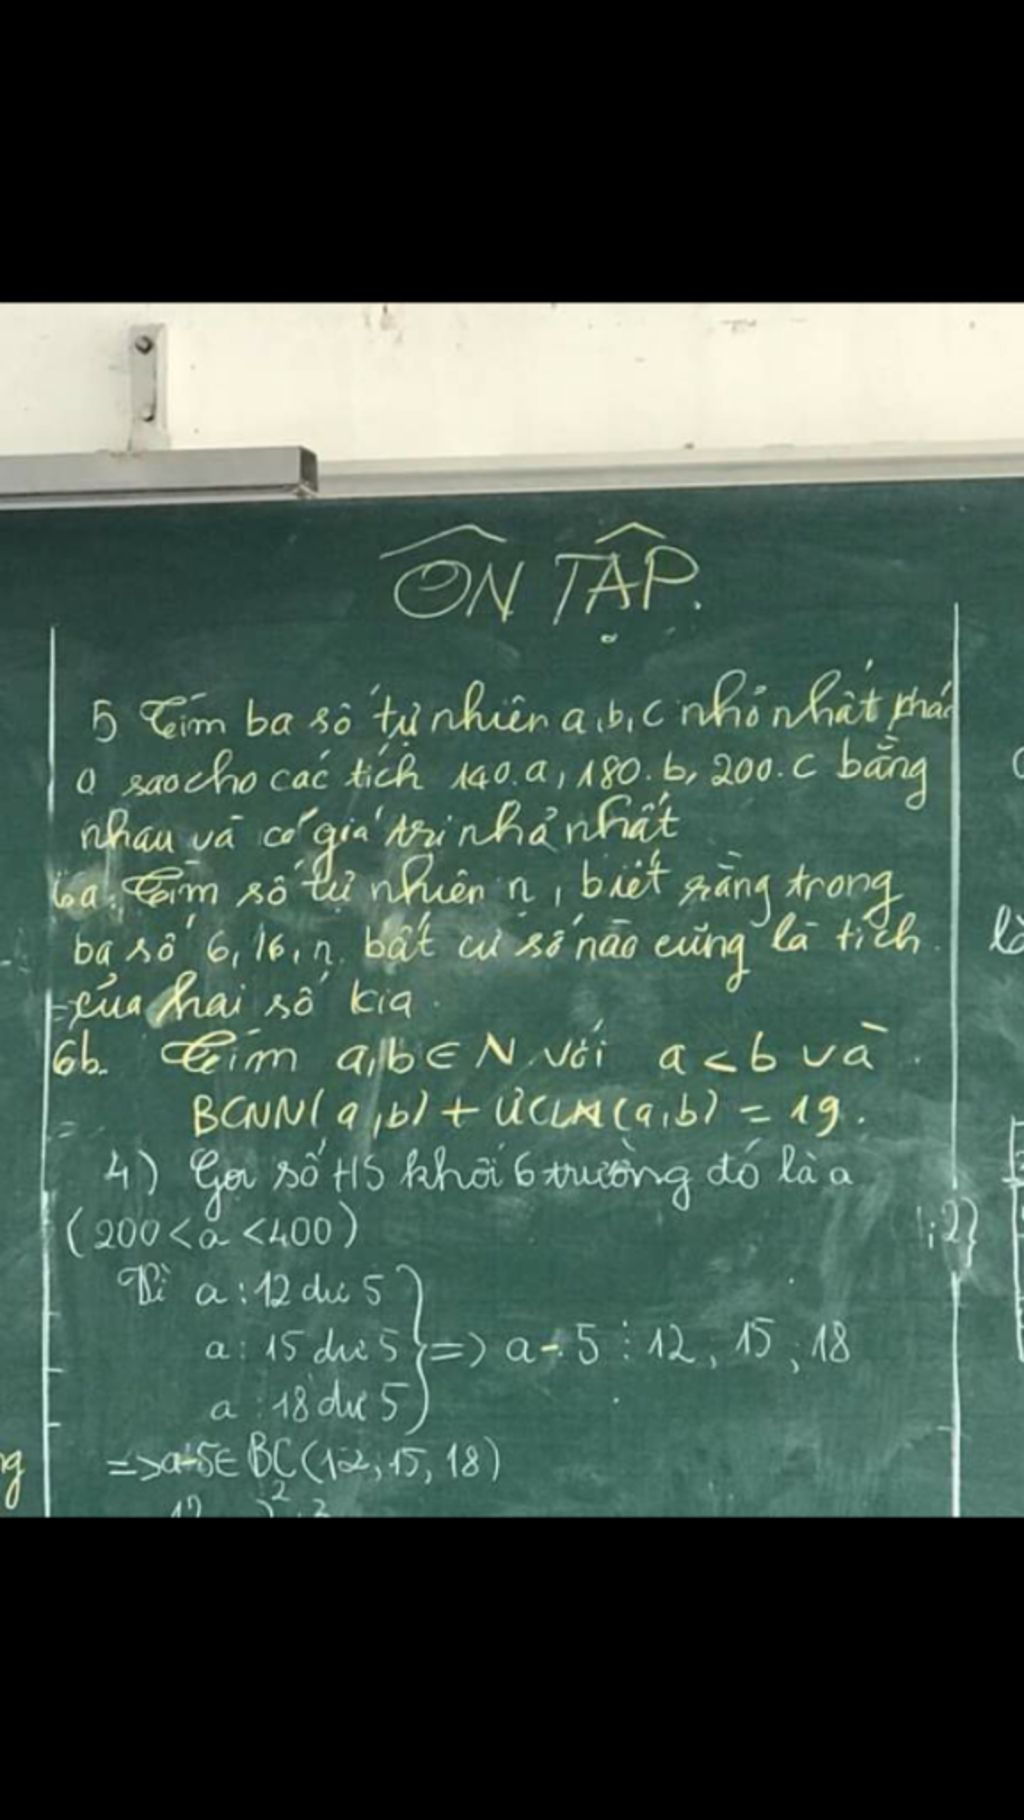 ÔN TẬP.
5 Tìm ba số tự nhiên a,b,c nhỏ nhất khác
0 sao cho các tích 140.a, 180.b, 200.c bằng
nhau và có giá trị nhỏ nhất
6a. Tìm số tự nhiên n, biết rằng trong
ba số 6, 16, n. bất cứ số nào cũng là tích
của hai số kia.
6b. Tìm a,b ∈ N với a < b và
BCNN(a,b) + ƯCLN(a,b) = 19.
4) Gọi số HS khối 6 trường đó là a
(200 < a < 400)
Vì a : 12 dư 5
a : 15 dư 5 => a - 5 ⋮ 12, 15, 18
a : 18 dư 5
=> a-5 ∈ BC(12, 15, 18)
;2}
ng